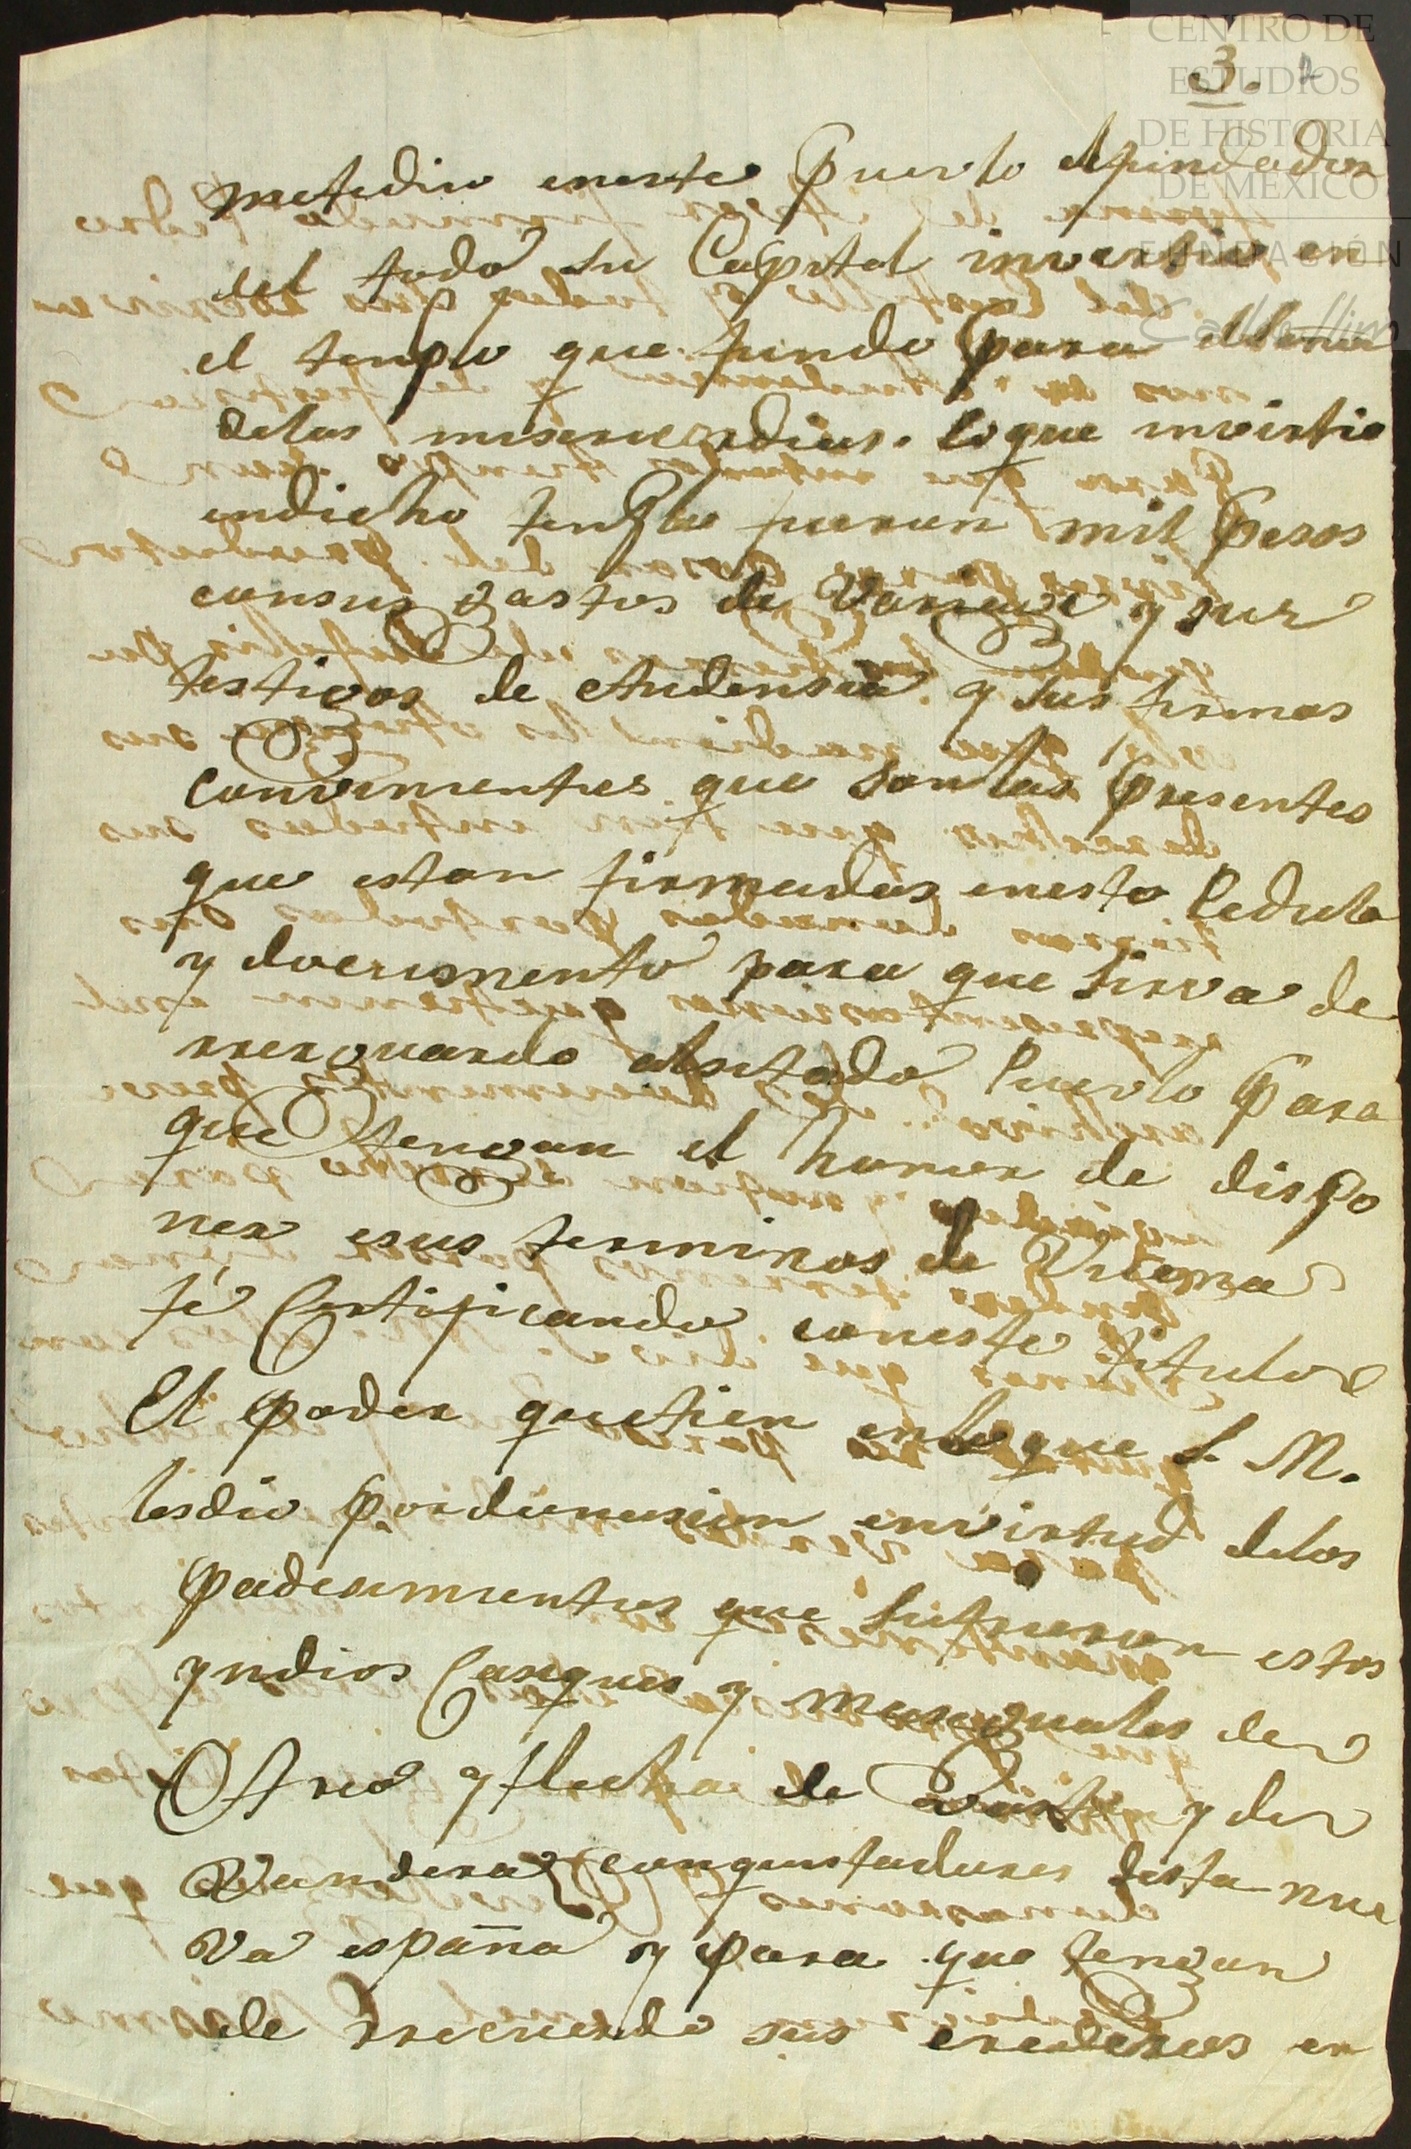 CENTRO DE
ESTUDIOS
DE HISTORIA
DE MÉXICO
FUNDACIÓN
3.
metedixo eneste Puevlo
del todo su Capital invertio en
el tenplo que fundo para
delas misericordias. loque invirtio
endicho tenplo mil pesos
consus gastos de y sus
testigos de Audensia y sus firmas
convenientes que son las presentes
que estan firmadas enesta Cedula
y documento para que sirva de
rresguardo alsitado Puevlo Para
que tengan el honor de dispo
ner esus terminos de
fé Certificando coneste titulo
El poder quetien enlo que S. M.
lesdio pordunasion envirtud delos
padesimientos que sufrieron estos
yndios Casques y maseguales de
Arco y flecha de y de
Vandera conquistadores desta nue
va españa y para que tengan
de rrecuerdo sus erederos en